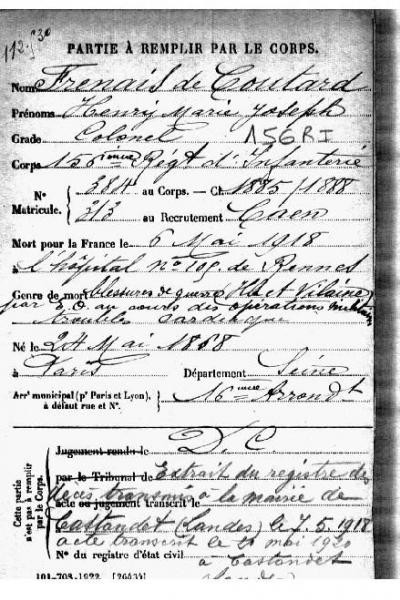 112-530
PARTIE À REMPLIR PAR LE CORPS.
Nom Frenais de Coutard
Prénoms Henri Marie Joseph
Grade Colonel 156 RI
Corps 156ième Régt d'Infanterie
N° Matricule. 384 au Corps. — Cl. 1885/1888
313 au Recrutement Caen
Mort pour la France le 6 Mai 1918
à l'hôpital n° 108 de Rennes
Genre de mort blessures de guerre Ille et Vilaine
par E.O au cours des opérations militaires
troubles cardiaques
Né le 24 Mai 1868
à Paris Département Seine
Arrt municipal (pr Paris et Lyon), à défaut rue et N°. 16ième Arrondt
Cette partie n'est pas à remplir par le Corps.
Jugement rendu le D.C
par le Tribunal de Extrait du registre des
acte ou jugement transcrit le décès transmis à la mairie de
Castandet (Landes) le 7.5.1918
acte transcrit le mai
N° du registre d'état civil à Castandet
101-708-1922. [26434]